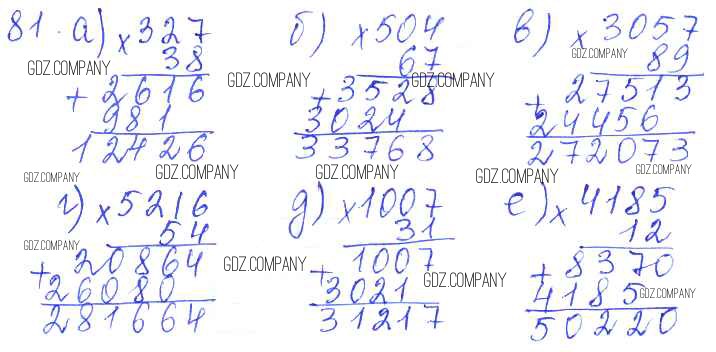 81. а) × 327 б) × 504 в) × 3057
38 67 89
GDZ.COMPANY GDZ.COMPANY GDZ.COMPANY GDZ.COMPANY
+ 2616 + 3528 + 27513
981 3024 24456
12426 33768 272073
GDZ.COMPANY GDZ.COMPANY GDZ.COMPANY GDZ.COMPANY
г) × 5216 д) × 1007 е) × 4185
54 31 12
GDZ.COMPANY GDZ.COMPANY GDZ.COMPANY GDZ.COMPANY
+ 20864 + 1007 + 8370
26080 3021 4185
281664 31217 50220